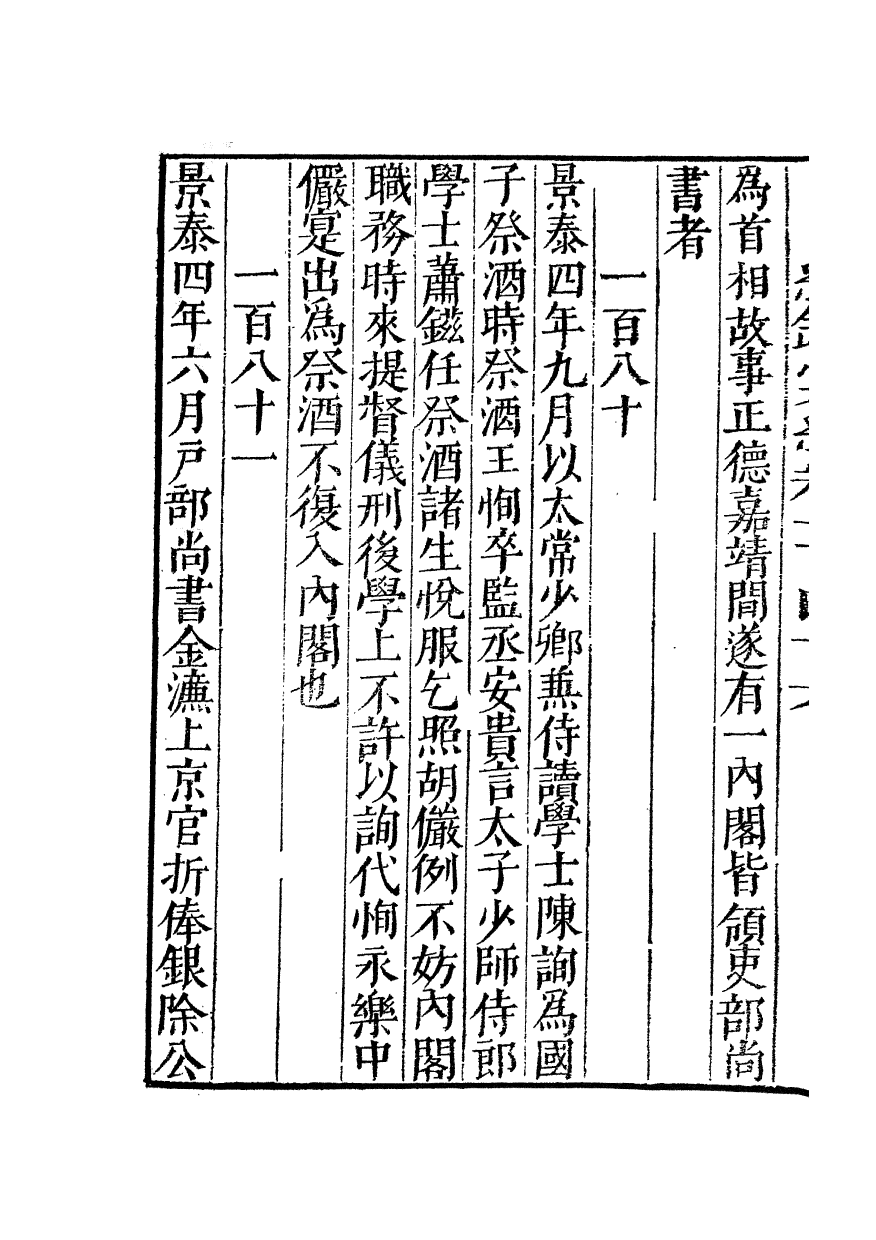 為首相故事正德嘉靖間遂有一內閣皆領吏部尚
書者
一百八十
景泰四年九月以太常少卿兼侍讀學士陳詢為國
子祭酒時祭酒王恂卒監丞安貴言太子少師侍郎
學士蕭鎡任祭酒諸生悅服乞照胡儼例不妨內閣
職務時來提督儀刑後學上不許以詢代恂永樂中
儼寔出爲祭酒不復入內閣也
一百八十一
景泰四年六月戶部尚書金濂上京官折俸銀除公